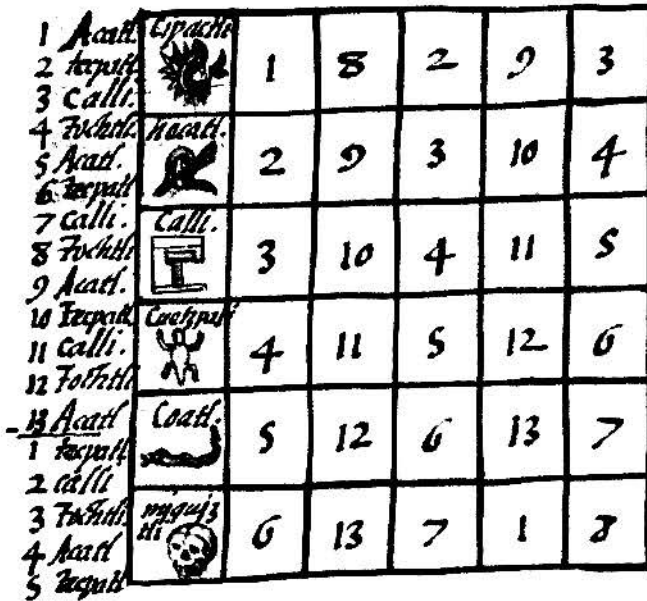 1 Acatl
2 tecpatl
3 Calli.
4 Tochtli.
5 Acatl.
6 tecpatl
7 Calli.
8 Tochtli
9 Acatl.
10 Tecpatl
11 Calli.
12 Tochtli
13 Acatl
1 tecpatl
2 calli
3 Tochtli
4 Acatl
5 Tecpatl
Cipactli 1 8 2 9 3
hecatl. 2 9 3 10 4
Calli. 3 10 4 11 5
4 11 5 12 6
Coatl. 5 12 6 13 7
miquiz
tli 6 13 7 1 8